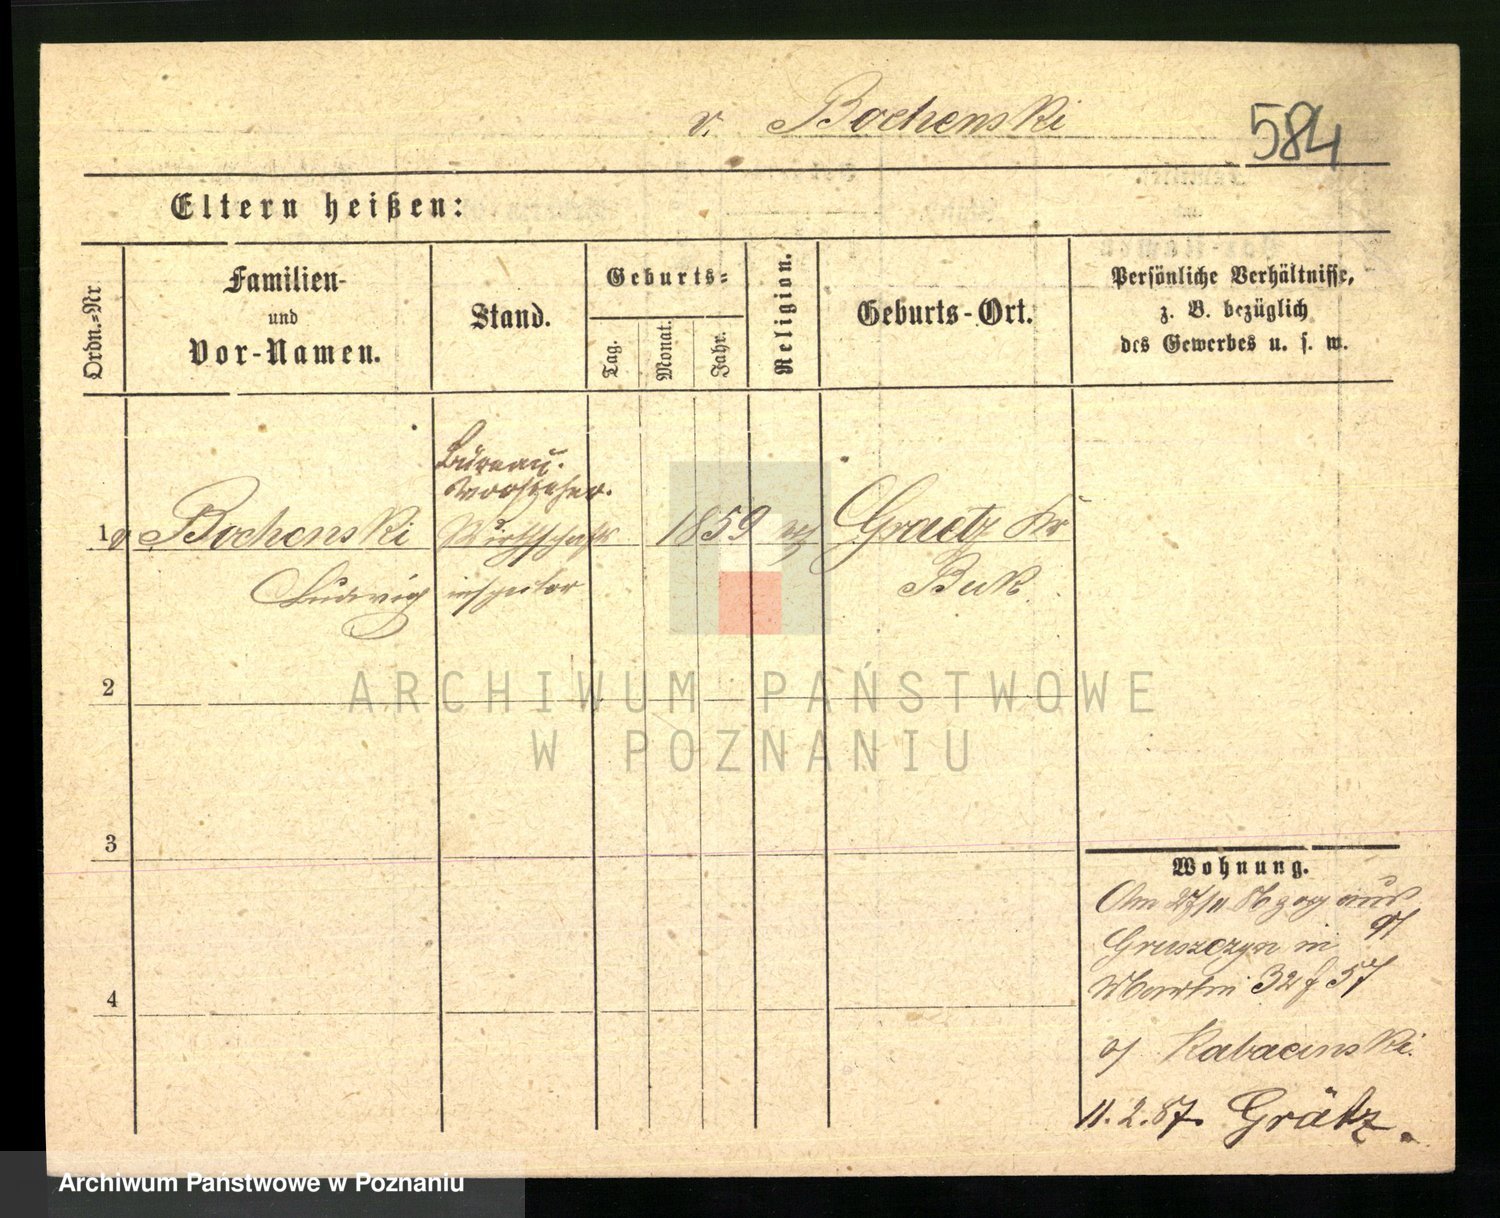 v. Bochenski
584
Eltern heißen:
Ordn.-Nr.
Familien-
und
Vor-Namen.
Stand.
Geburts-
Tag.
Monat.
Jahr.
Religion.
Geburts-Ort.
Persönliche Verhältnisse,
z. B. bezüglich
des Gewerbes u. s. w.
Büreau-
vorsteher.
1 v Bochenski
Wirthschafts
1859
Graetz Kr
Ludwig
inspector
Buk
2
ARCHIWUM PAŃSTWOWE
W POZNANIU
3
Wohnung.
Am 27/11 86 zog aus
Gruszczyn in
Martin 32 f 57
Rabacinski.
4
11.2.87. Grätz.
Archiwum Państwowe w Poznaniu